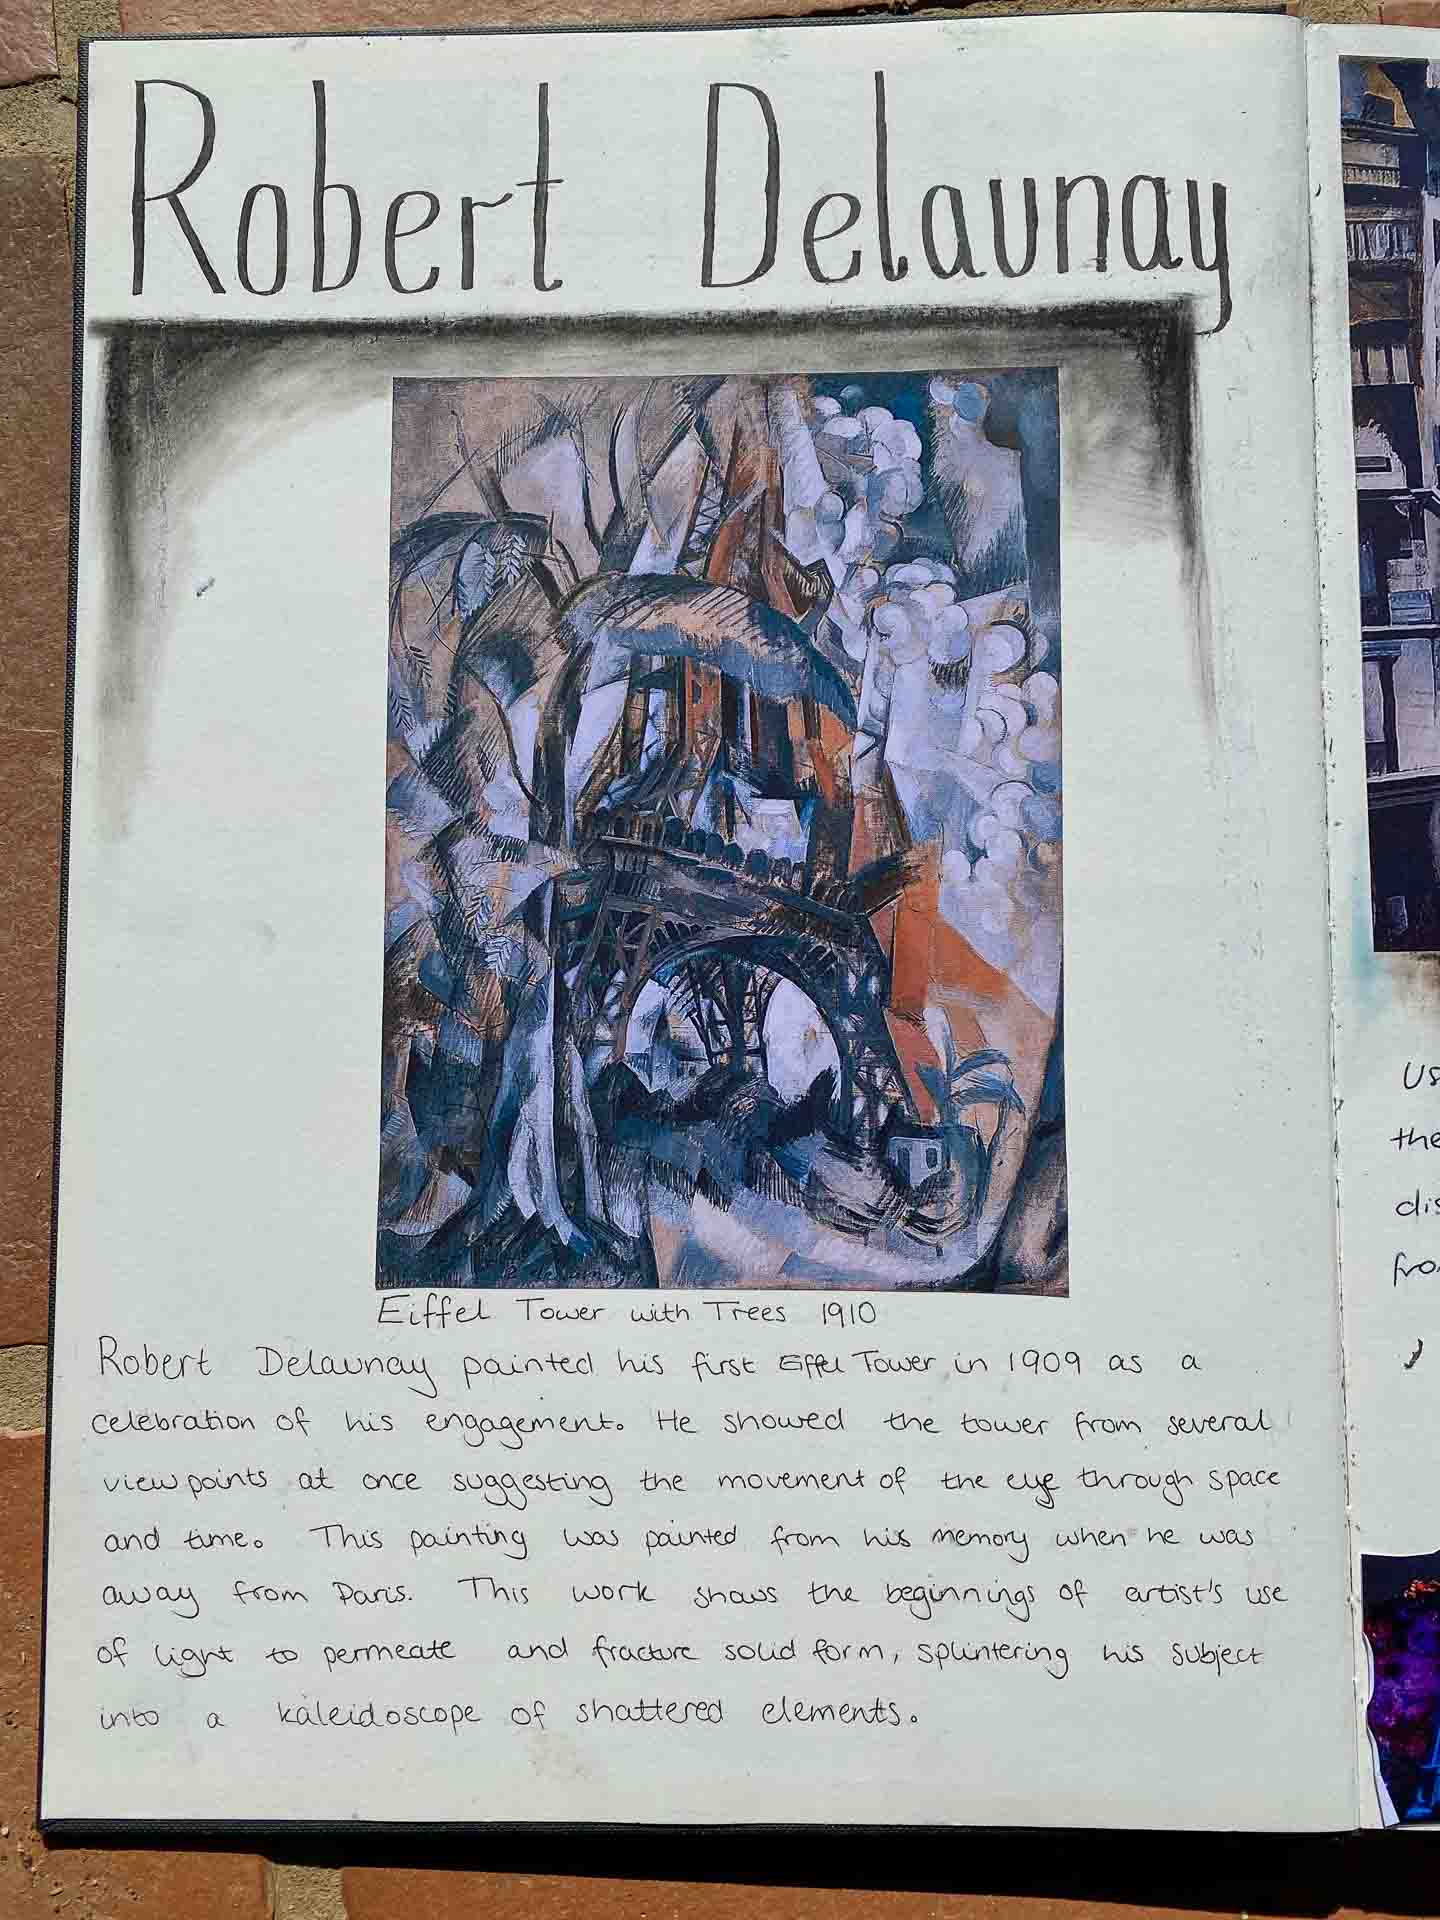 Robert Delaunay
R delaunay
Eiffel Tower with Trees 1910
Robert Delaunay painted his first Eiffel Tower in 1909 as a
celebration of his engagement. He showed the tower from several
viewpoints at once suggesting the movement of the eye through space
and time. This painting was painted from his memory when he was
away from Paris. This work shows the beginnings of artist's use
of light to permeate and fracture solid form, splintering his subject
into a kaleidoscope of shattered elements.
Us
the
dis
fro